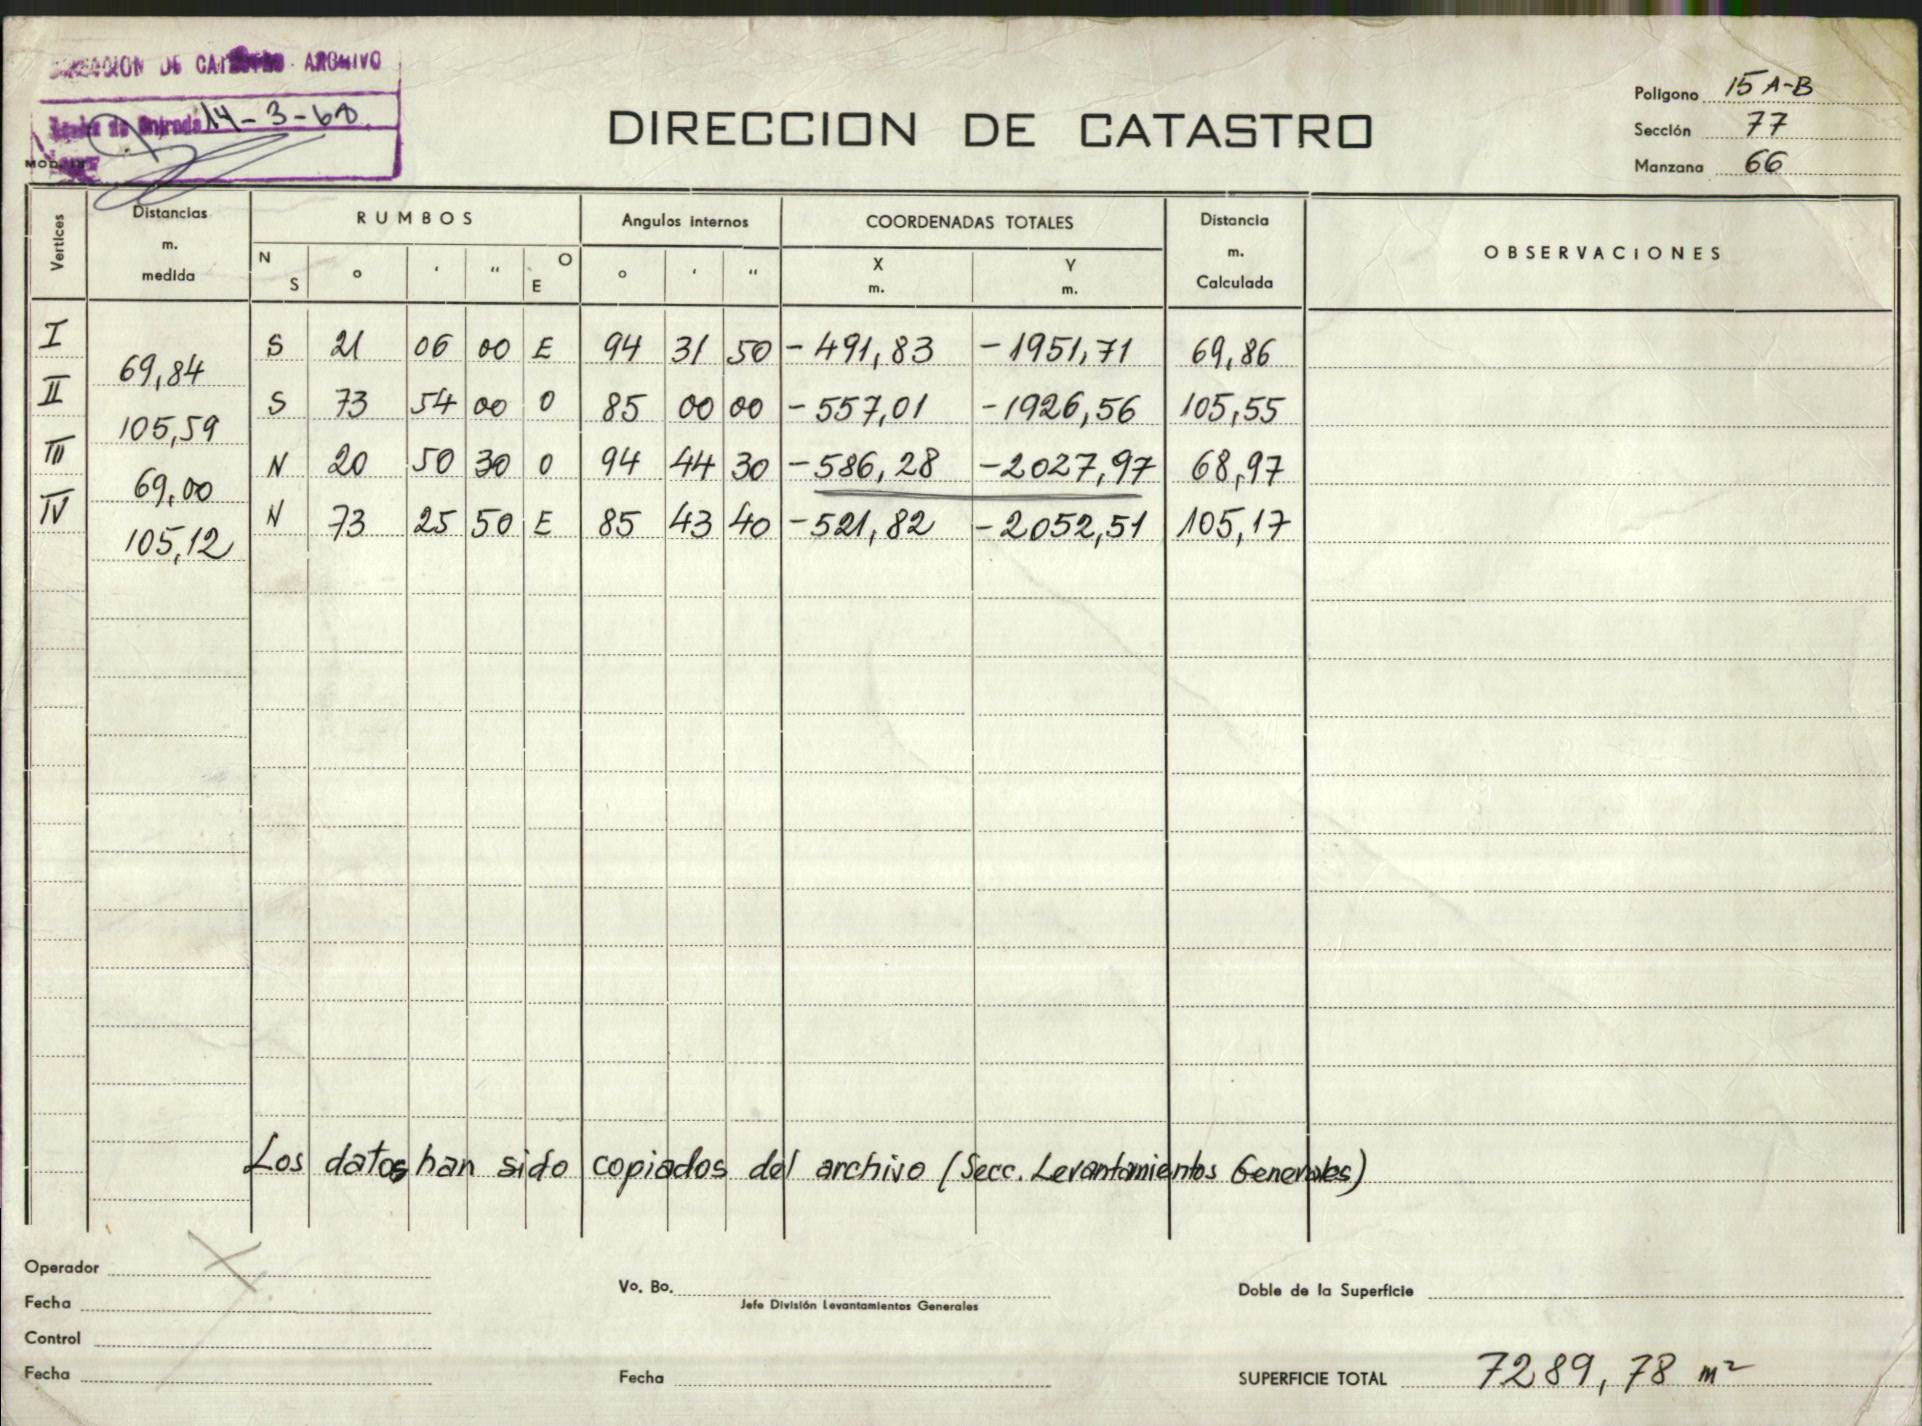 DIRECCION DE CATASTRO ARCHIVO
Fecha de Entrada 14-3-68
DIRECCION DE CATASTRO
Polígono 15 A-B
Sección 77
Manzana 66
Vertices
Distancias m. medida
RUMBOS
Angulos internos
COORDENADAS TOTALES
Distancia m. Calculada
OBSERVACIONES
N S ° ' " O E
° ' "
X m. Y m.
I
S 21 06 00 E 94 31 50 -491,83 -1951,71 69,86
69,84
II
S 73 54 00 O 85 00 00 -557,01 -1926,56 105,55
105,59
III
N 20 50 30 O 94 44 30 -586,28 -2027,97 68,97
69,00
IV
N 73 25 50 E 85 43 40 -521,82 -2052,51 105,17
105,12
Los datos han sido copiados del archivo (Secc. Levantamientos Generales)
Operador
Fecha
Control
Fecha
Vo. Bo.
Jefe División Levantamientos Generales
Fecha
Doble de la Superficie
SUPERFICIE TOTAL 7289,78 m²